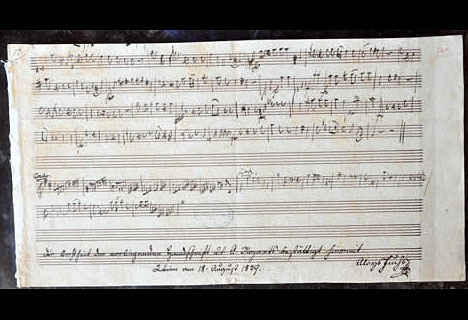 Die Ächtheit der vorliegenden Handschrift als A. Mozarts bestättigt hiermit
Wien am 18. August 1839. Aloys Fuchs